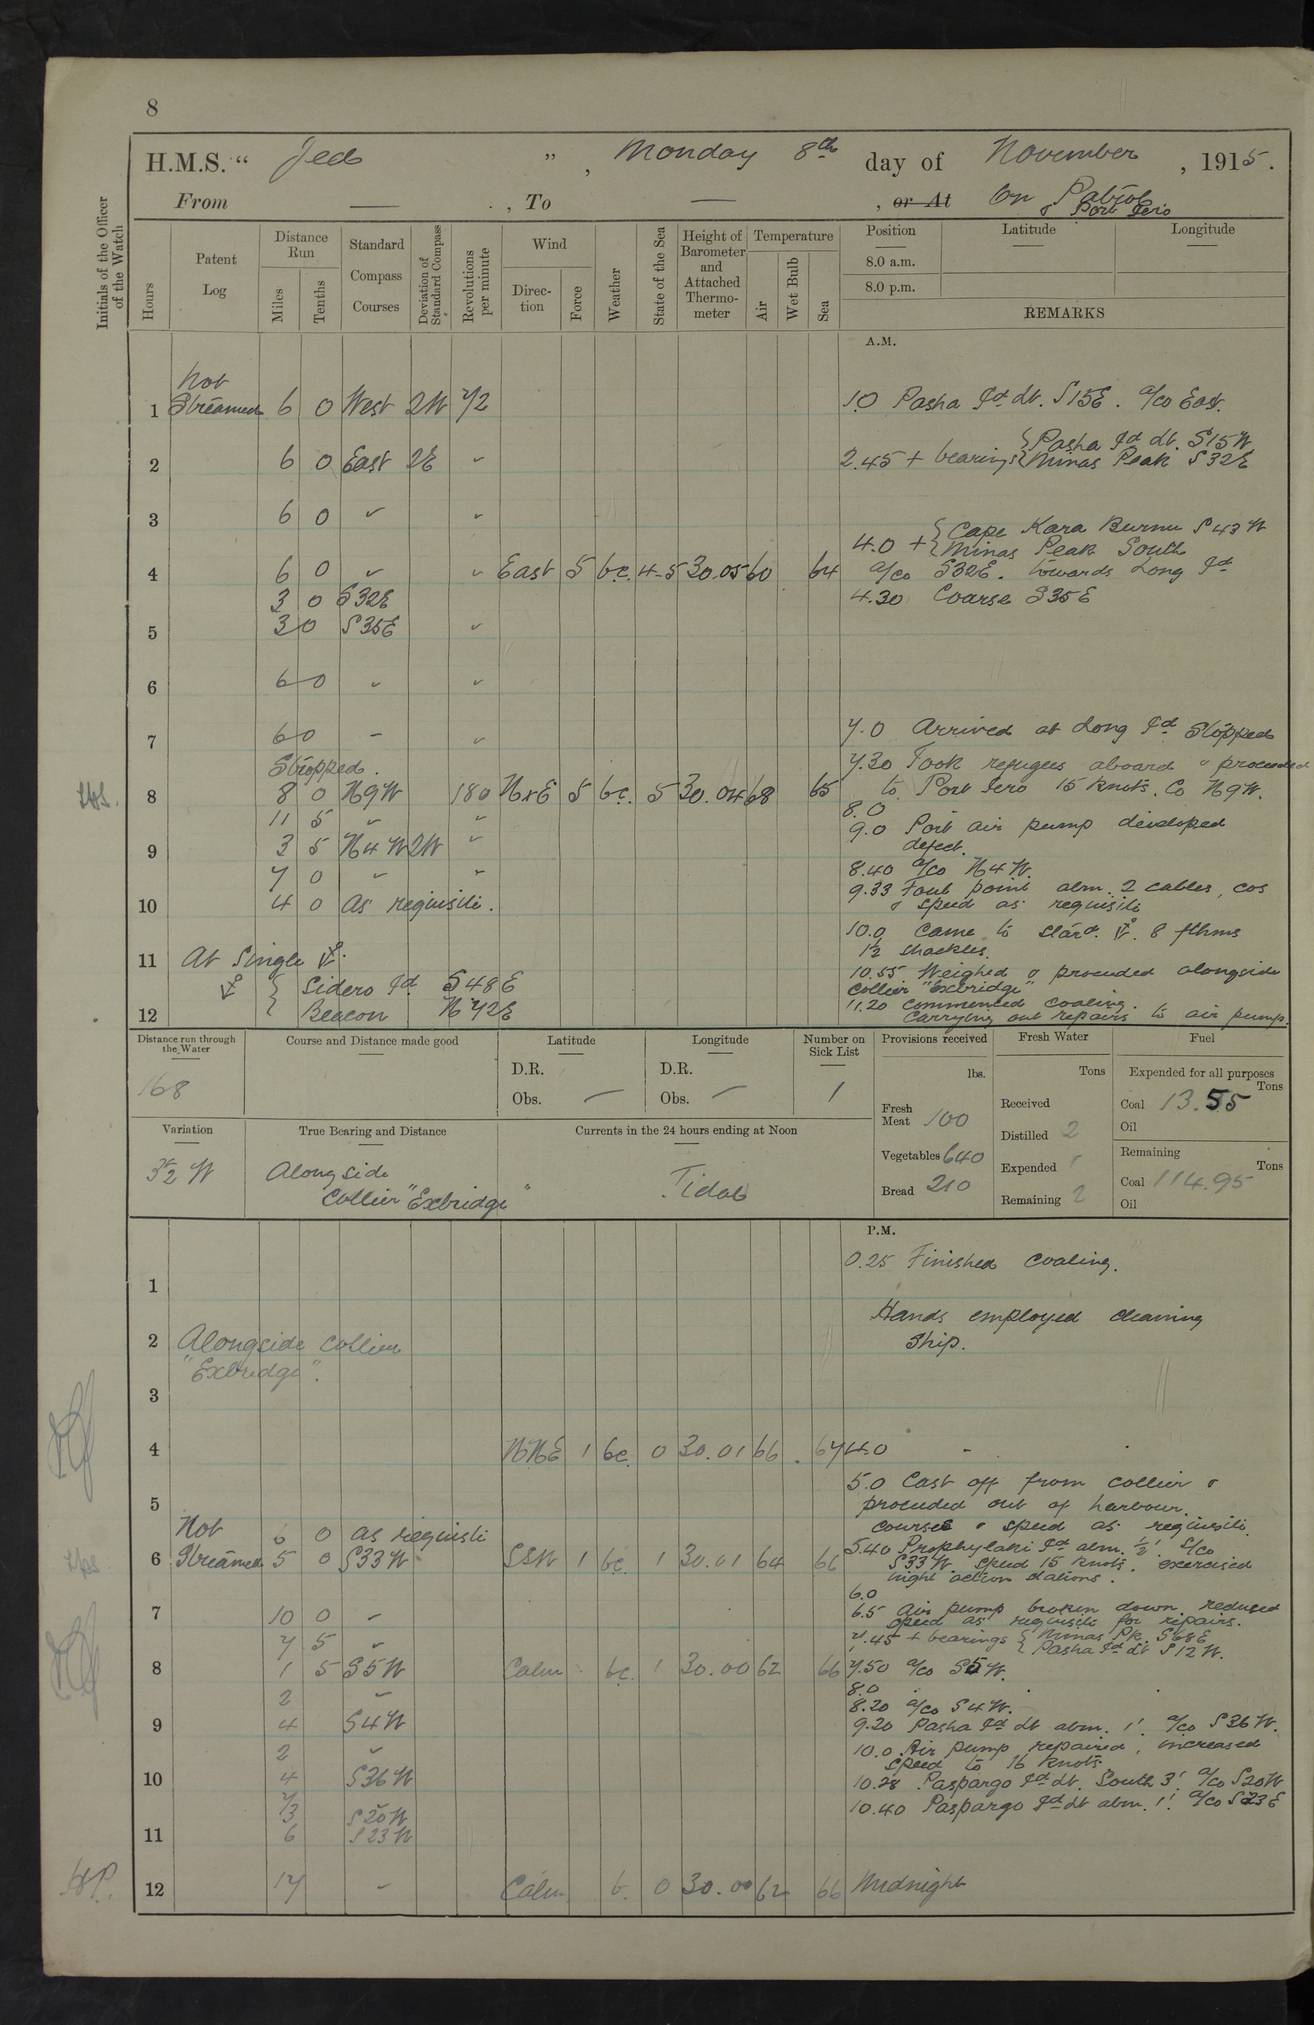 8
H.M.S. “ Jed ”, Monday 8th day of November, 1915.
From — , To — , or At On Patrol
& Port Iero
Initials of the Officer of the Watch
Hours
Patent Log
Distance Run
Miles
Tenths
Standard Compass Courses
Deviation of Standard Compass
Revolutions per minute
Wind
Direction
Force
Weather
State of the Sea
Height of Barometer and Attached Thermometer
Temperature
Air
Wet Bulb
Sea
Position
Latitude
Longitude
8.0 a.m.
8.0 p.m.
REMARKS
A.M.
Not
1 Streamed 6 0 West 2W 72 1.0 Pasha Id dt. S15E. a/co East.
2 6 0 East 2E " 2.45 + bearings { Pasha Id dt. S15W
Minas Peak S32E
3 6 0 " "
4.0 + { Cape Kara Burnu S43W
Minas Peak South
4 6 0 " " East 5 bc. 4-5 30.05 60 64 a/co S32E. towards Long Id
3 0 S32E 4.30 Course S35E
5 3 0 S35E "
6 6 0 " "
7 6 0 " " 7.0 Arrived at Long Id Stopped
Stopped. 7.30 Took refugees aboard & proceeded
8 8 0 N9W 180 NxE 5 bc. 5 30.04 68 65 to Port Iero 15 knots. Co N9W.
8.0
11 5 " " 9.0 Port air pump developed
defect.
9 3 5 N4W 2W "
7 0 " " 8.40 a/co N4W.
10 4 0 As requisite. 9.33 Foul point abm. 2 cables, cos
& speed as requisite
10.0 Came to Stard. ⚓. 8 fthms
11 At Single ⚓. 1½ shackles.
⚓ { Sidero Id S48E 10.55 Weighed & proceeded alongside
Collier "Exbridge"
12 Beacon N72E 11.20 Commenced coaling.
Carrying out repairs to air pump.
Distance run through the Water
168
Course and Distance made good
Latitude
D.R.
Obs. —
Longitude
D.R.
Obs. —
Number on Sick List
1
Provisions received
lbs.
Fresh Meat 100
Vegetables 640
Bread 210
Fresh Water
Tons
Received
Distilled 2
Expended
Remaining 2
Fuel
Expended for all purposes
Tons
Coal 13.55
Oil
Remaining
Tons
Coal 114.95
Oil
Variation
3½ W
True Bearing and Distance
Alongside
Collier "Exbridge"
Currents in the 24 hours ending at Noon
Tidal
P.M.
0.25 Finished coaling.
1
Hands employed cleaning
2 Alongside Collier Ship.
"Exbridge".
3
4 NNE 1 bc. 0 30.01 66 67 4.0
5.0 Cast off from collier &
5 proceeded out of harbour
Not 6 0 as requisite courses & speed as requisite.
5.40 Prophylaki Id abm. ½' S/Co
6 Streamed 5 0 S33W SSW 1 bc. 1 30.01 64 66 S33W. Speed 15 knots. exercised
night action stations.
6.0
7 10 0 " 6.5 Air pump broken down, reduced
speed as requisite for repairs.
7 5 " 7.45 + bearings { Minas Pk. S68E
Pasha Id dt S12W.
8 1 5 S5W Calm bc. 1 30.00 62 66 7.50 a/co S5W.
8.0
2 " 8.20 a/co S4W.
9 4 S4W 9.20 Pasha Id dt abm. 1'. a/co S36W.
2 " 10.0 Air pump repaired, increased
speed to 16 knots
10 4 S36W 10.28 Paspargo Id dt. South 3'. a/co S20W
7 " 10.40 Paspargo Id dt abm. 1'. a/co S23E
3 S20W
11 6 S23W
12 17 " Calm b. 0 30.00 62 66 Midnight